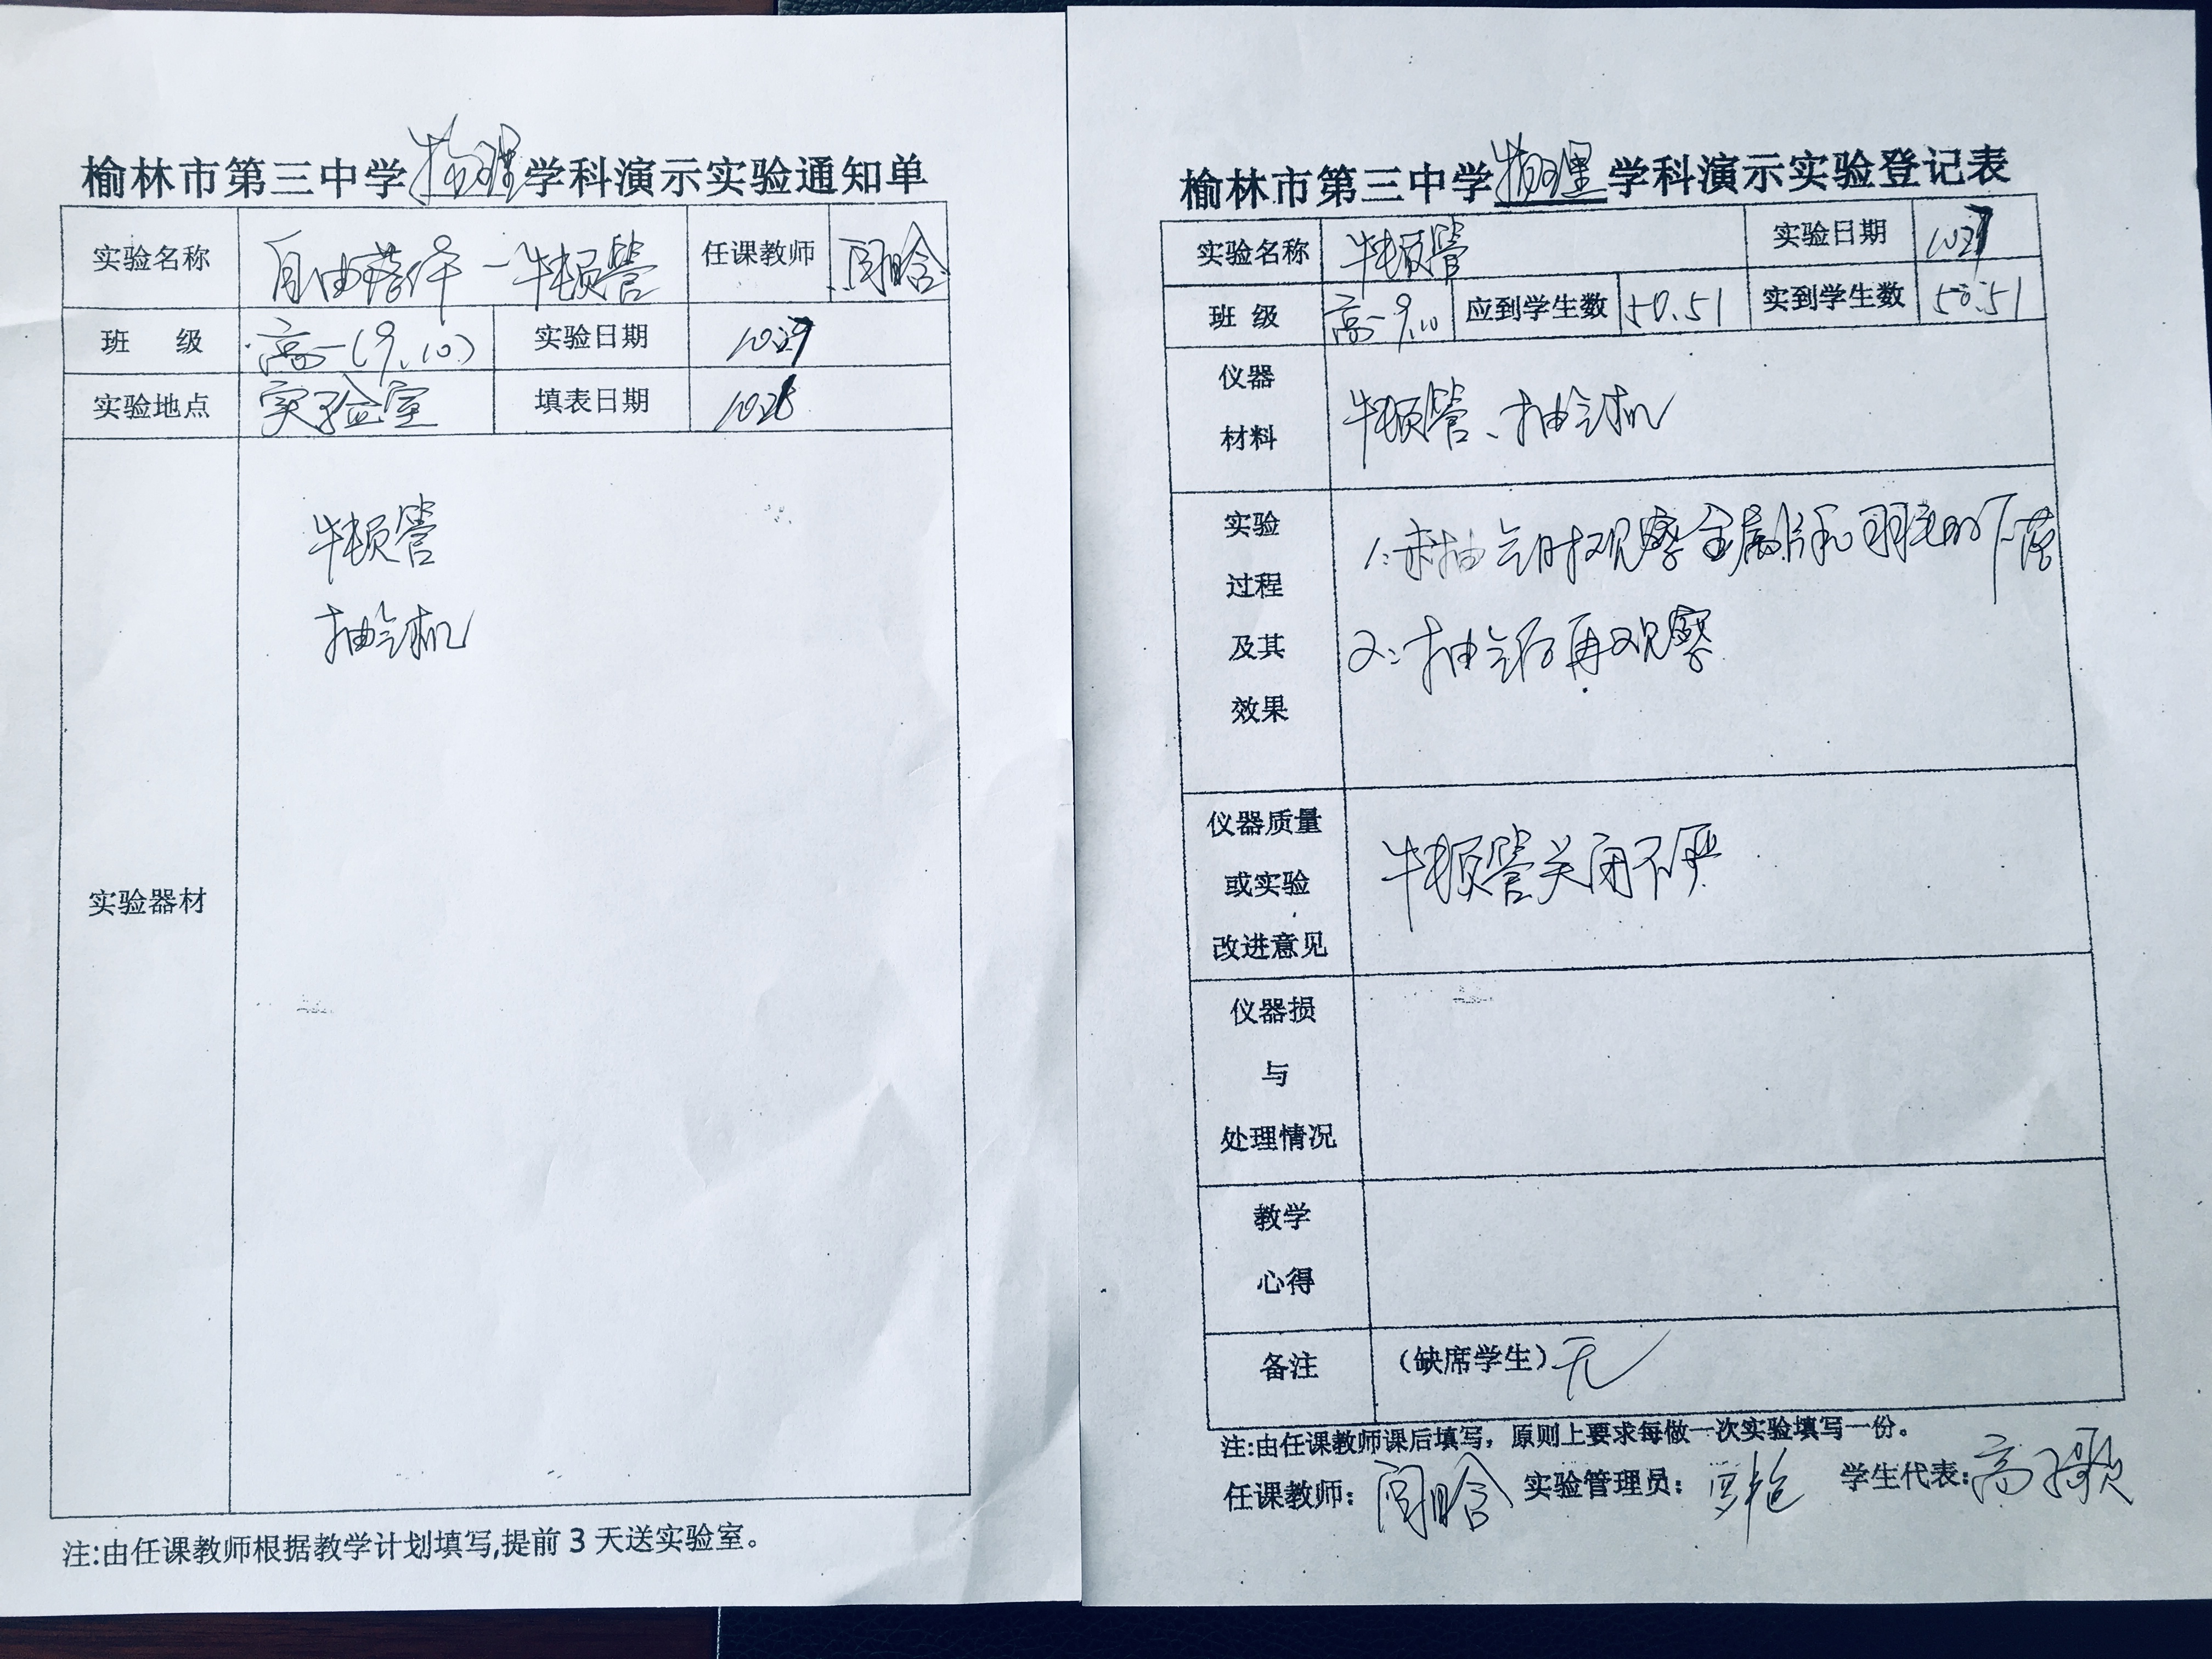 榆林市第三中学物理学科演示实验通知单
实验名称 自由落体-牛顿管 任课教师
班 级 高一(9、10) 实验日期 10.27
实验地点 实验室 填表日期
实验器材
牛顿管
抽气机
注:由任课教师根据教学计划填写,提前3天送实验室。
榆林市第三中学物理学科演示实验登记表
实验名称 牛顿管 实验日期 10.27
班 级 高一9.10 应到学生数 50.51 实到学生数 50.51
仪器
材料
牛顿管、抽气机
实验
过程
及其
效果
1:未抽气时观察金属片和羽毛的下落
2:抽气后再观察
仪器质量
或实验
改进意见
牛顿管关闭不严
仪器损
与
处理情况
教学
心得
备注 (缺席学生)无
注:由任课教师课后填写，原则上要求每做一次实验填写一份。
任课教师: 实验管理员: 学生代表:高子歌